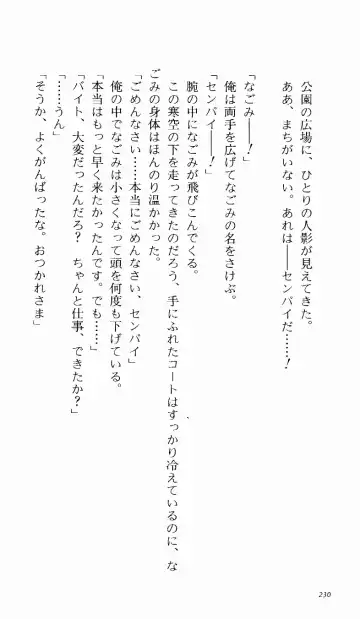 公園の広場に、ひとりの人影が見えてきた。
ああ、まちがいない。あれは――センパイだ……！
「なごみ――！」
俺は両手を広げてなごみの名をさけぶ。
「センパイ――！」
腕の中になごみが飛びこんでくる。
この寒空の下を走ってきたのだろう、手にふれたコートはすっかり冷えているのに、な
ごみの身体はほんのり温かかった。
「ごめんなさい……本当にごめんなさい、センパイ」
俺の中でなごみは小さくなって頭を何度も下げている。
「本当はもっと早く来たかったんです。でも……」
「バイト、大変だったんだろ？　ちゃんと仕事、できたか？」
「……うん」
「そうか、よくがんばったな。おつかれさま」
230